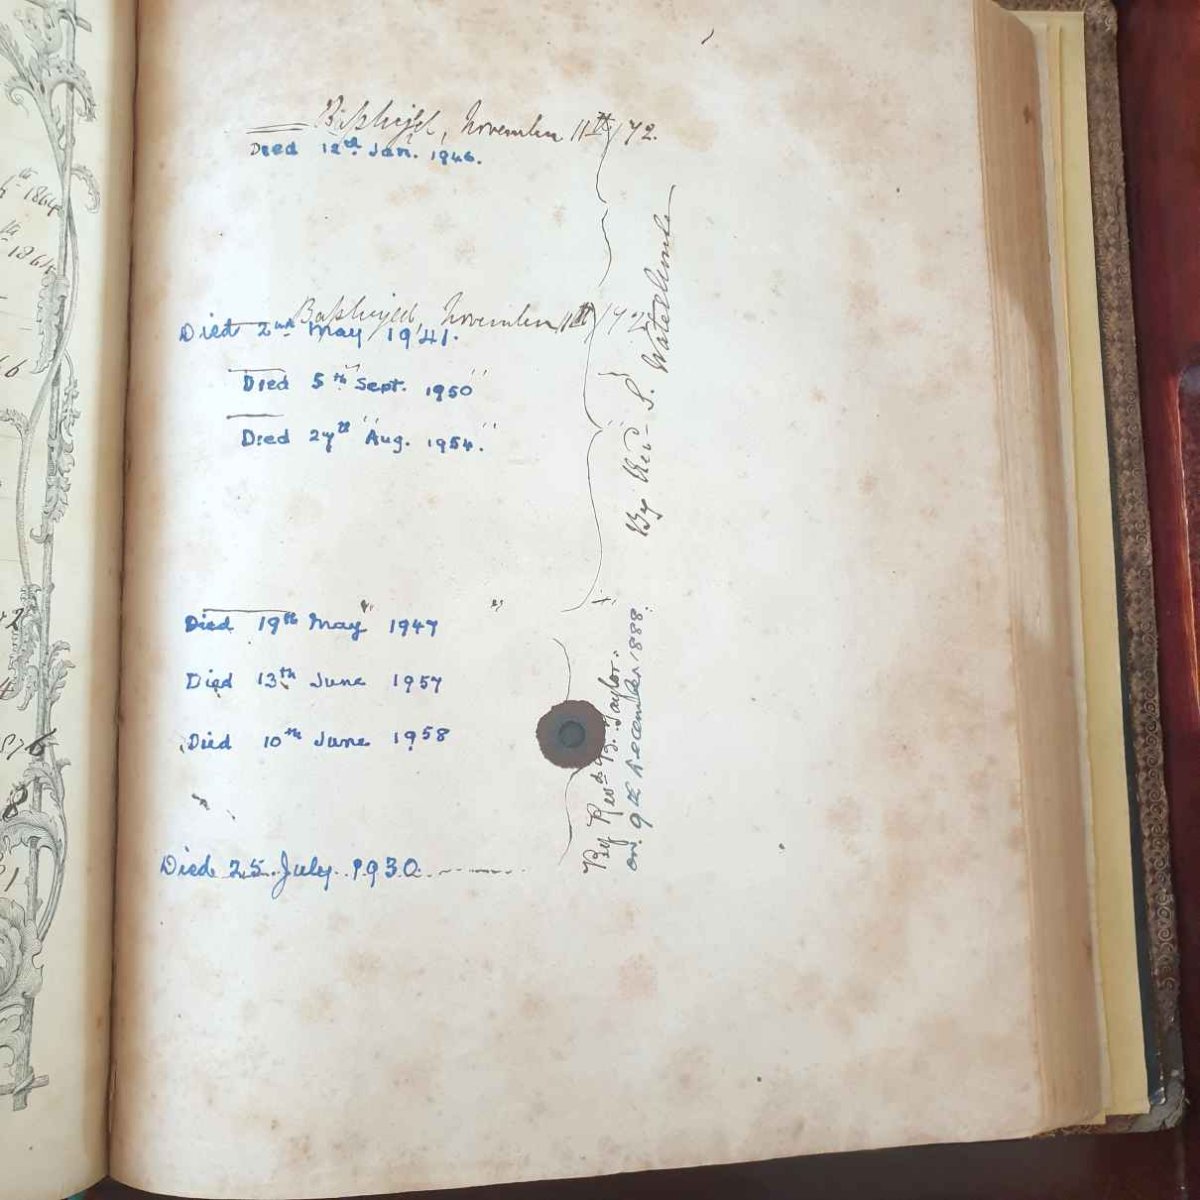 Baptized, November 11th /72.
Died 12th Jan. 1946.
Baptized, November 11th /72
Died 2nd May 1941.
Died 5th Sept. 1950
" "
Died 27th Aug. 1954.
" "
By Revd S.
Died 19th May 1947
" "
Died 13th June 1957
Died 10th June 1958
Died 25 July 1930
By Revd B. Taylor.
on 9th December 1888.
th 1864
th 1864
6
2
4
876
8
1